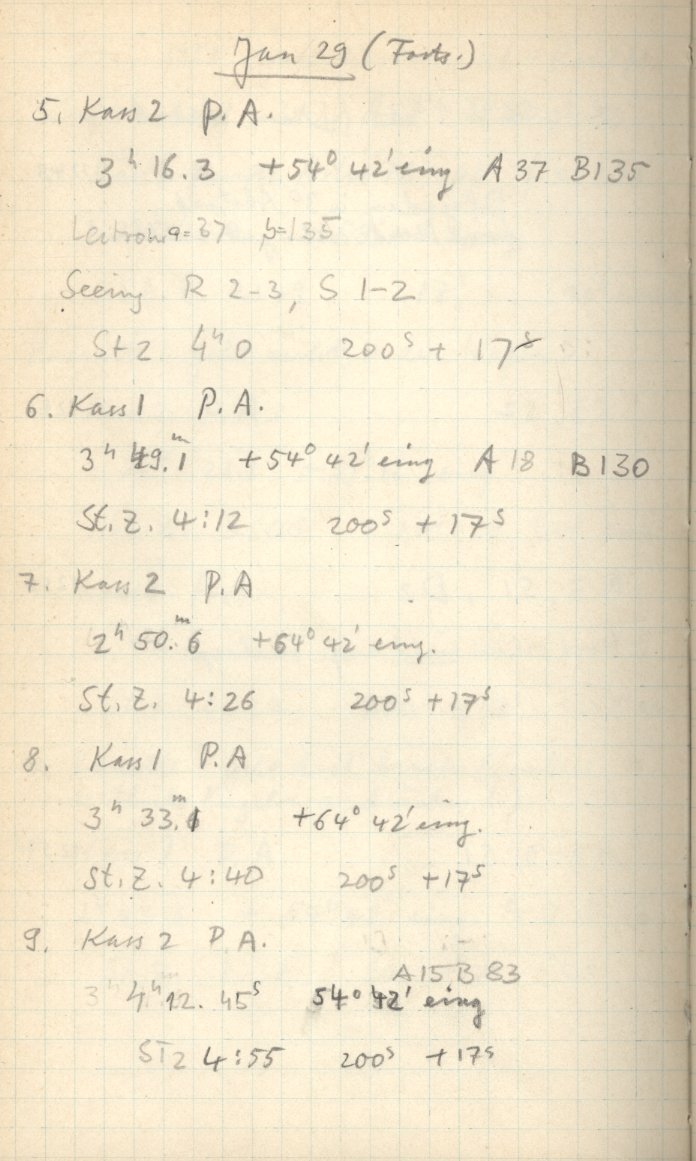 Jan 29 (Forts.)
5. Kass 2 P.A.
3ʰ 16.3 +54° 42' eing A 37 B 135
a=37 b=135
Seeing R 2-3, S 1-2
StZ 4ʰ0 200ˢ + 17ˢ
6. Kass 1 P.A.
3ʰ 49.ᵐ1 +54° 42' eing A 18 B 130
St.Z. 4:12 200ˢ +17ˢ
7. Kass 2 P.A
2ʰ 50.ᵐ6 +64° 42' eing.
St.Z. 4:26 200ˢ +17ˢ
8. Kass 1 P.A
3ʰ 33.ᵐ1 +64° 42' eing.
St.Z. 4:40 200ˢ +17ˢ
9. Kass 2 P.A.
A 15 B 83
4ʰ 12.ᵐ 45ˢ 54° 42' eing
STZ 4:55 200ˢ +17ˢ